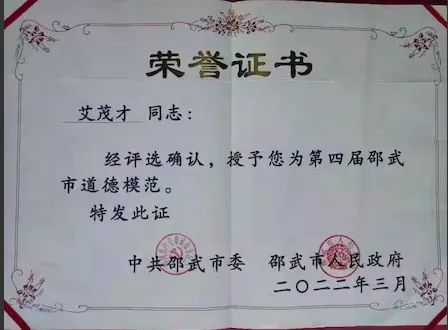 荣誉证书
艾茂才 同志：
经评选确认，授予您为第四届邵武
市道德模范。
特发此证
中共邵武市委 邵武市人民政府
二〇二二年三月